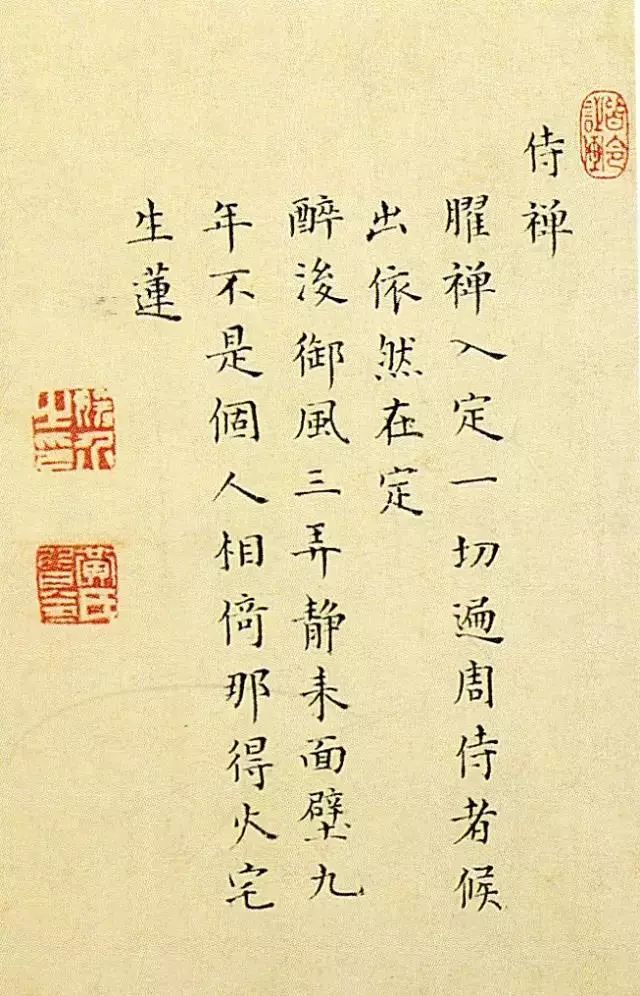 侍禅
臞禅入定一切遍周侍者候
出依然在定
醉後御風三弄静来面壁九
年不是個人相倚那得火宅
生蓮